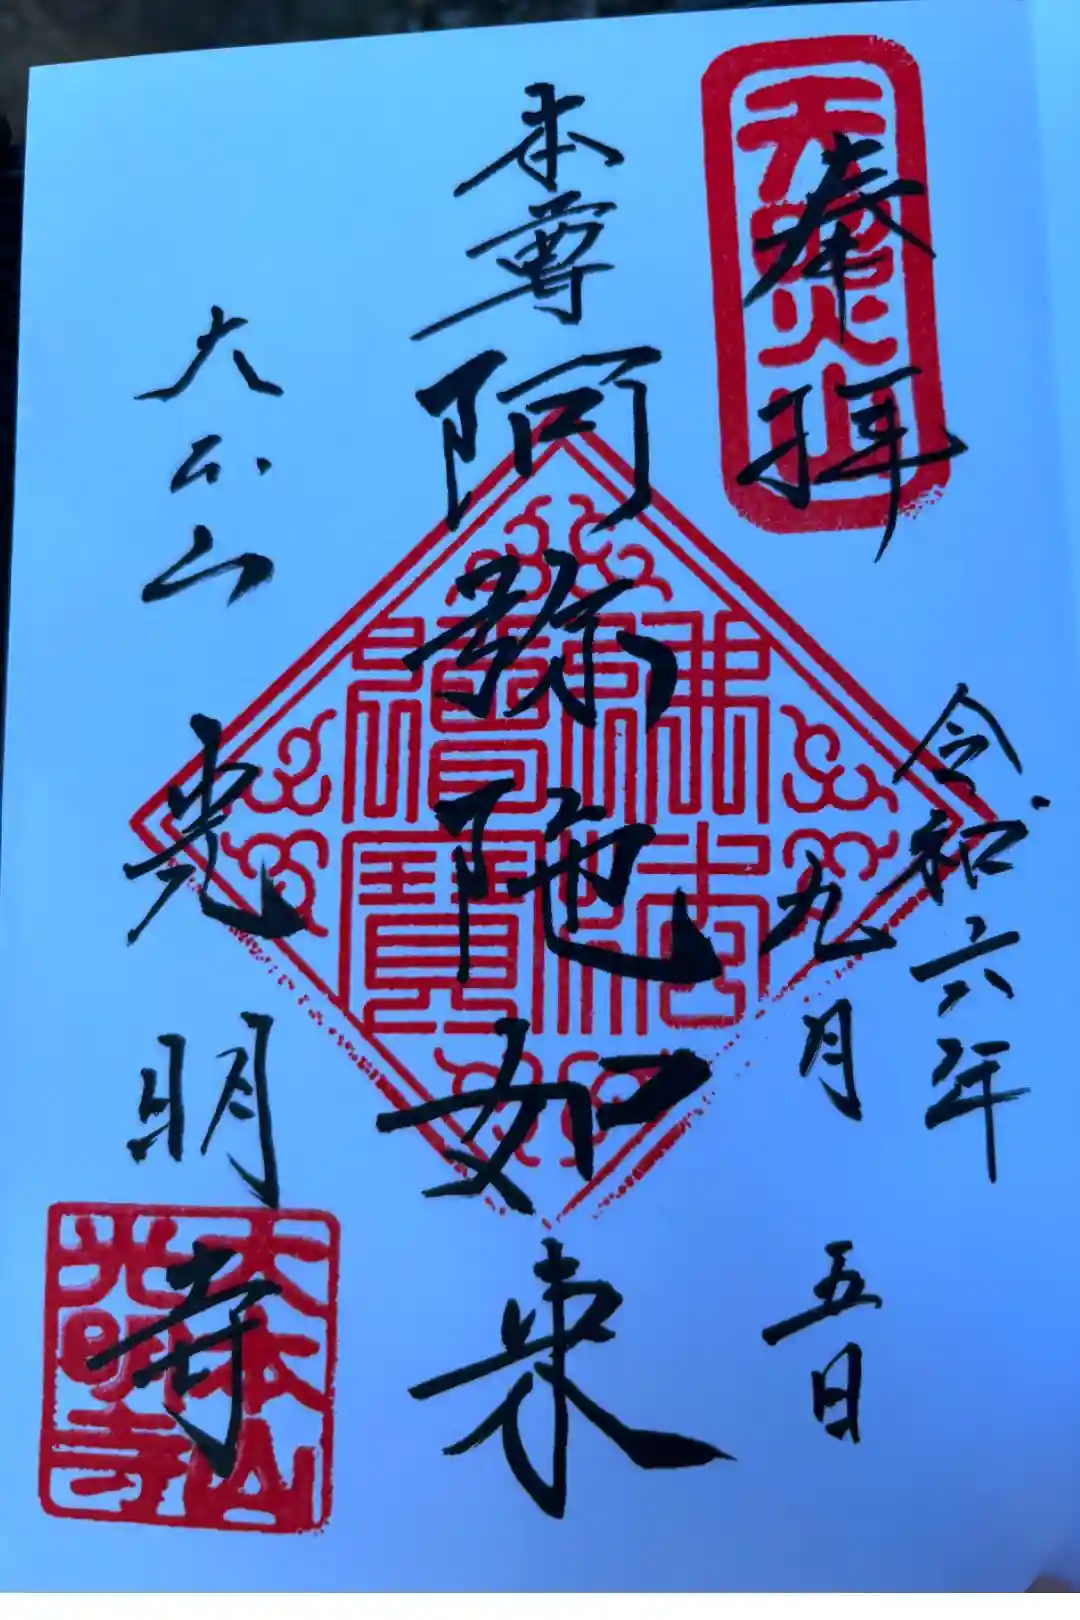 奉拝
天照山
令和六年
九月五日
本尊
阿弥陀如来
佛法僧寶
大本山
光明寺
大本山
光明寺